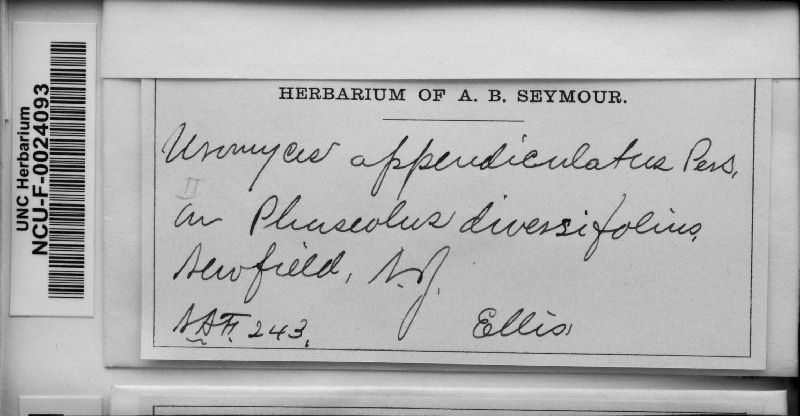 UNC Herbarium
NCU-F-0024093
HERBARIUM OF A. B. SEYMOUR.
Uromyces appendiculatus Pers.
II
on Phaseolus diversifolius,
Newfield, N.J.
N.A.F. 243. Ellis